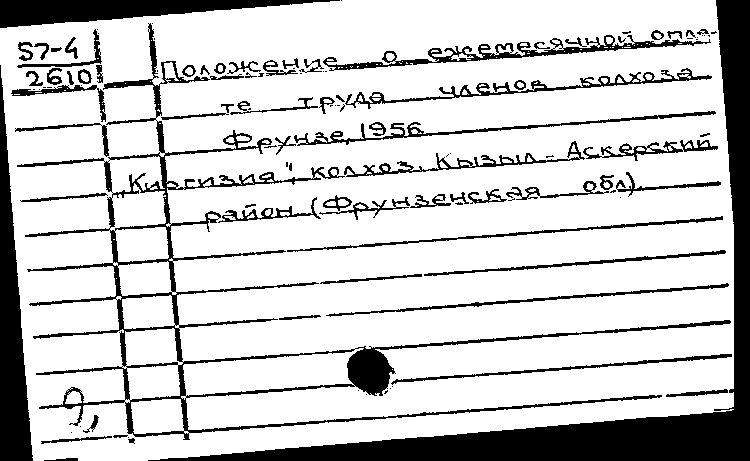 57-4
2610
Положение о ежемесячной опла-
те труда членов колхоза
Фрунзе, 1956
"Киргизия", колхоз. Кызыл-Аскерский
район (Фрунзенская обл).